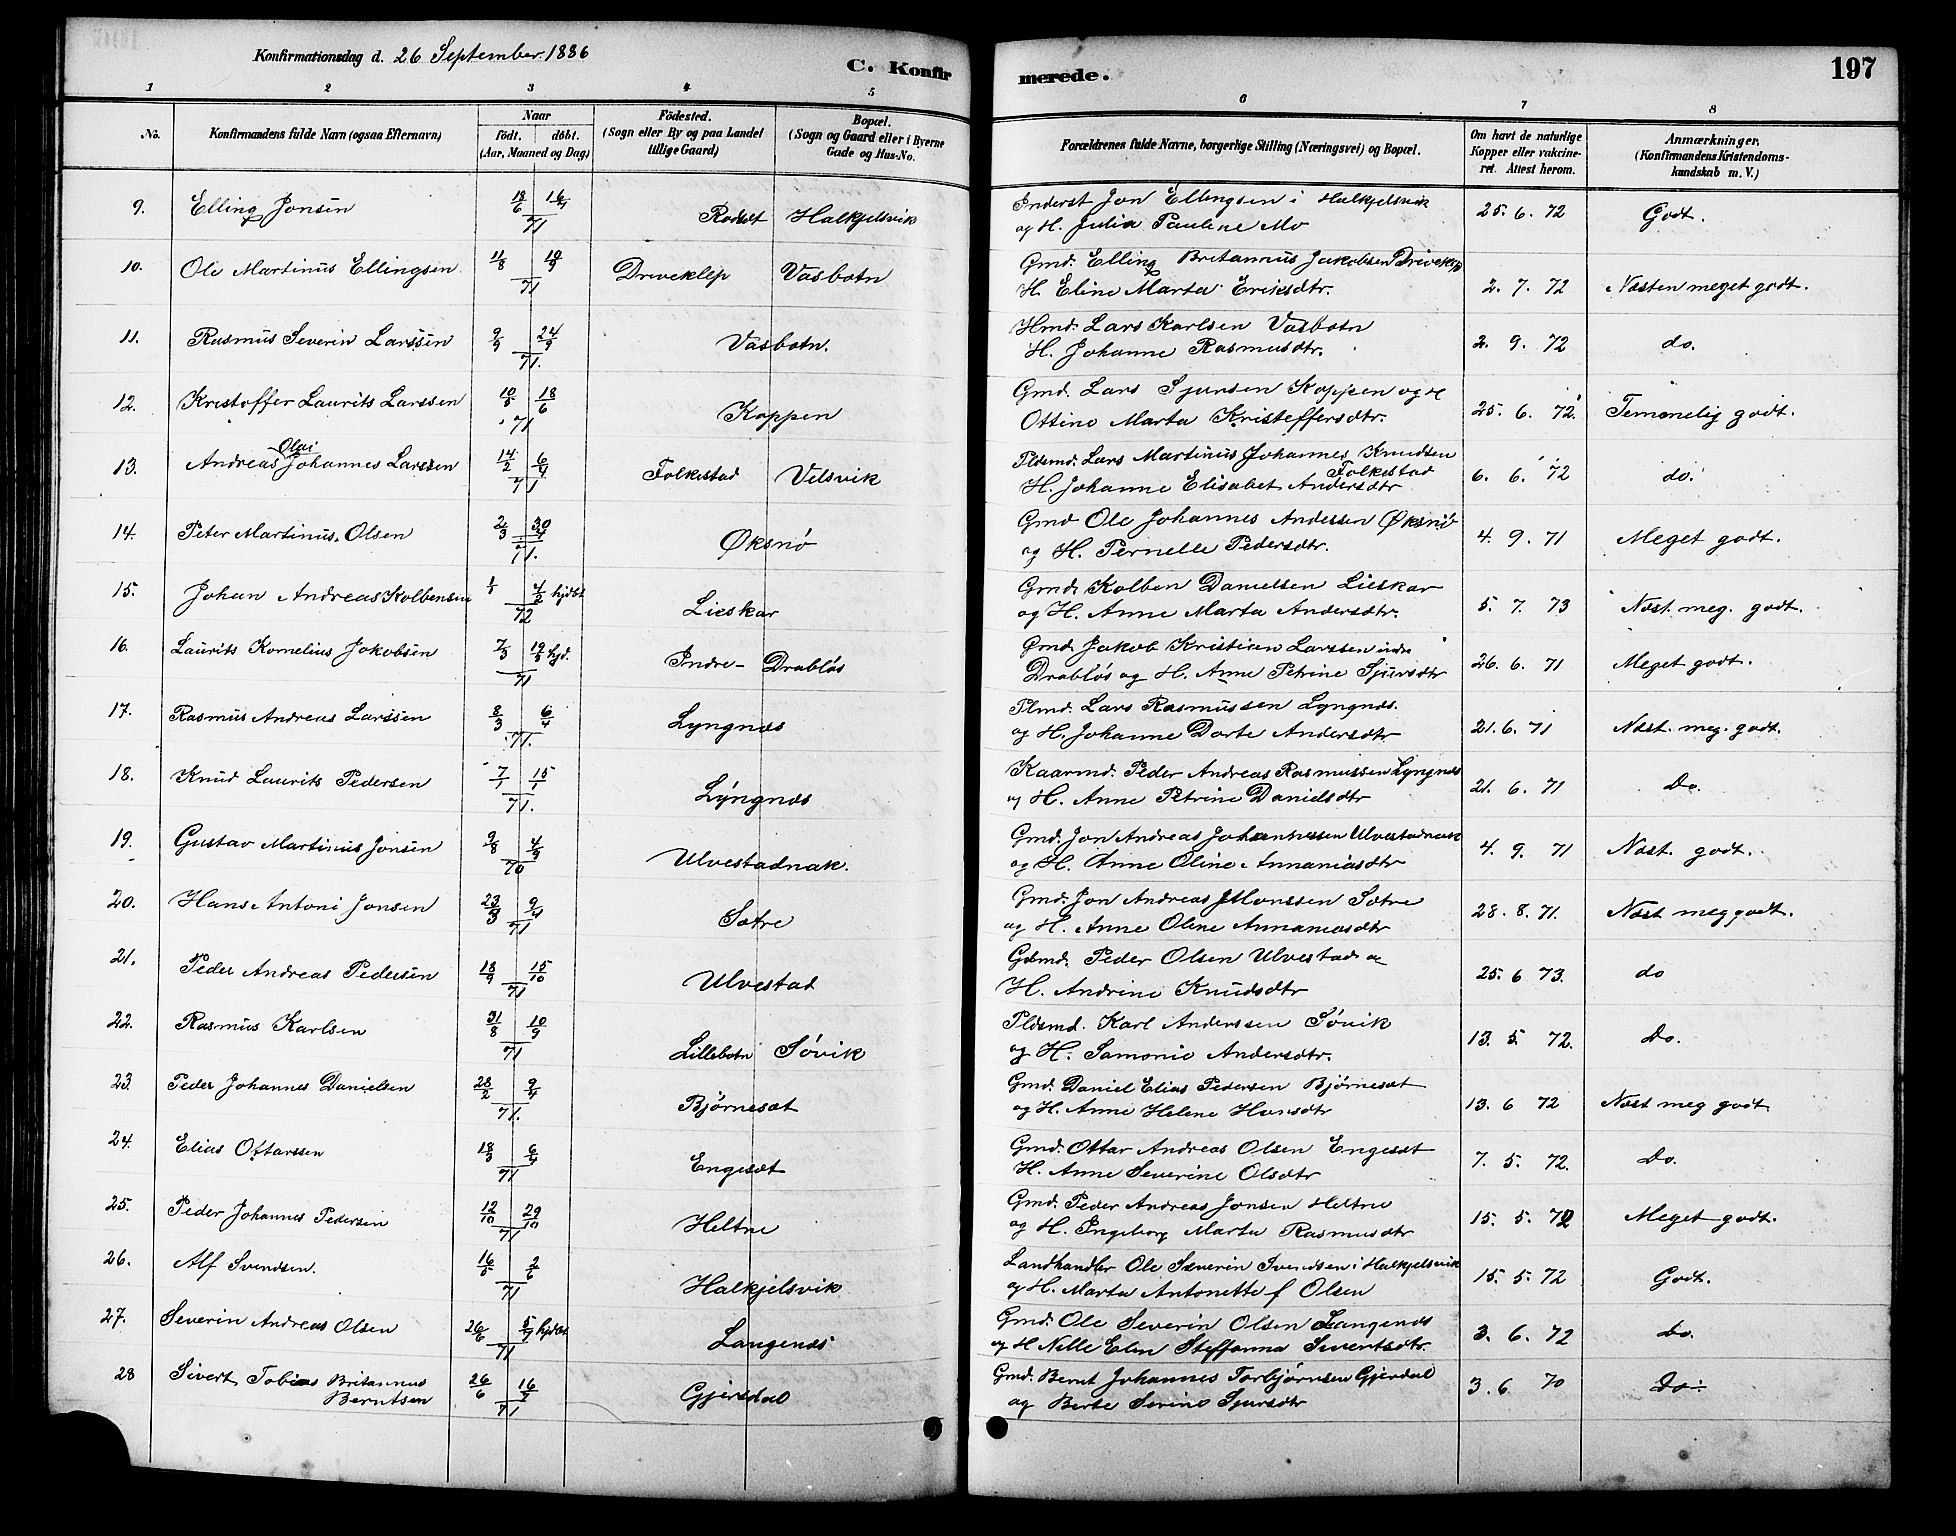 Konfirmationsdag d. 26 September 1886
C. Konfirmerede.
197
1 2 3 4 5 6 7 8
No. Konfirmandens fulde Navn (ogsaa Efternavn) Naar født. døbt. (Aar, Maaned og Dag) Födested. (Sogn eller By og paa Landet tillige Gaard) Bopæl. (Sogn og Gaard eller i Byerne Gade og Hus-No. Forældrenes fulde Navne, borgerlige Stilling (Næringsvei) og Bopæl. Om havt de naturlige Kopper eller vakcineret. Attest herom. Anmærkninger. (Konfirmandens Kristendomskundskab m. V.)
9. Elling Jonsen 18/6 16/7 71 Rodset Halkjelsvik Inderst Jon Ellingsen i Halkjelsvik 25. 6. 72 Godt.
og H. Julia Pauline Mo
10. Ole Martinus Ellingsen 11/8 10/9 71 Driveklep Vasbotn Gmd. Elling Britannus Jakobsen Driveklep 2. 7. 72 Næsten meget godt.
H. Eline Marta Eriksdtr.
11. Rasmus Severin Larssen 9/9 24/9 71. Vasbotn. Hmd. Lars Karlsen Vasbotn 2. 9. 72 do.
H. Johanne Rasmusdtr.
12. Kristoffer Laurits Larssen 10/5 18/6 71 Koppen Gmd. Lars Sjursen Koppen og H 25. 6. 72. Temmelig godt.
Ottine Marta Kristoffersdtr.
13. Andreas Olai Johannes Larssen 14/2 6/4 71 Folkestad Velsvik Pldsmd. Lars Martinus Johannes Knudsen Folkestad 6. 6. 72 do.
H. Johanne Elisabet Andersdtr
14. Peter Martinus Olsen 2/3 30/4 71. Øksnø Gmd Ole Johannes Anderssen Øksnø 4. 9. 71 Meget godt.
og H. Pernelle Pedersdtr.
15. Johan Andreas Kolbensen 4/2 hjdbt 72 Lieskar Gmd. Kolben Danielsen Lieskar 5. 7. 73 Næst. meg. godt.
og H. Anne Marta Andersdtr.
16. Laurits Kornelius Jakobsen 7/3 19/3 hjd. 71 Indre-Drabløs Gmd. Jakob Kristian Larssen indre 26. 6. 71 Meget godt.
Drabløs og H. Anne Petrine Sjursdtr
17. Rasmus Andreas Larssen 8/3 6/4 71. Lyngnæs Plmd. Lars Rasmussen Lyngnæs. 21. 6. 71 Næst. meg. godt.
og H. Johanne Dorte Andersdtr
18. Knud Laurits Pedersen 7/1 15/1 71. Lyngnæs Kaarmd. Peder Andreas Rasmussen Lyngnæs 21. 6. 71 Do.
og H. Anne Petrine Danielsdtr
19. Gustav Martinus Jonsen 9/8 4/9 70 Ulvestadnak. Gmd. Jon Andreas Johannessen Ulvestadnak 4. 9. 71 Næst. godt.
og H. Anne Oline Annaniasdtr
20. Hans Antoni Jonsen 23/3 9/4 71 Sætre Gmd. Jon Andreas Monssen Sætre 28. 8. 71. Næst meg godt.
og H. Anne Oline Annaniasdtr
21. Peder Andreas Pedersen 18/9 15/10 71 Ulvestad Gdmd. Peder Olsen Ulvestad og 25. 6 73. do
H. Andrine Knudsdtr
22. Rasmus Karlsen 31/8 10/9 71 Lillebotn Søvik Pldsmd. Karl Anderssen Søvik 13. 5. 72. Do.
og H. Samonie Andersdtr.
23. Peder Johannes Danielsen 28/2 9/4 71. Bjørneset Gmd. Daniel Elias Pedersen Bjørneset 13. 6 72 Næst meg godt
og H. Anne Helene Hansdtr
24. Elias Ottarssen 18/3 6/4 71 Engeset Gmd. Ottar Andreas Olsen Engeset 7. 5. 72. Do.
H. Anne Severine Olsdtr
25. Peder Johannes Pedersen 12/10 29/10 71 Heltne Gmd. Peder Andreas Jonsen Heltne 15. 5. 72 Meget godt.
og H. Ingeborg Marta Rasmusdtr
26. Alf Svendsen. 16/5 2/6 71 Halkjelsvik Landhandler Ole Severin Svendsen i Halkjelsvik 15. 5. 72 Godt.
og H. Marta Antonette f Olsen
27. Severin Andreas Olsen 26/6 5/7 hjdbt 71 Langenæs Gmd. Ole Severin Olsen Langenæs 3. 6. 72 do.
og H Nelle Elen Steffanna Sivertsdtr.
28 Sivert Tobias Britannus Berntsen 26/6 16/7 71 Gjersdal Gmd. Bernt Johannes Torbjørnsen Gjersdal 3. 6 70 Do.
og Berte Serine Sjursdtr